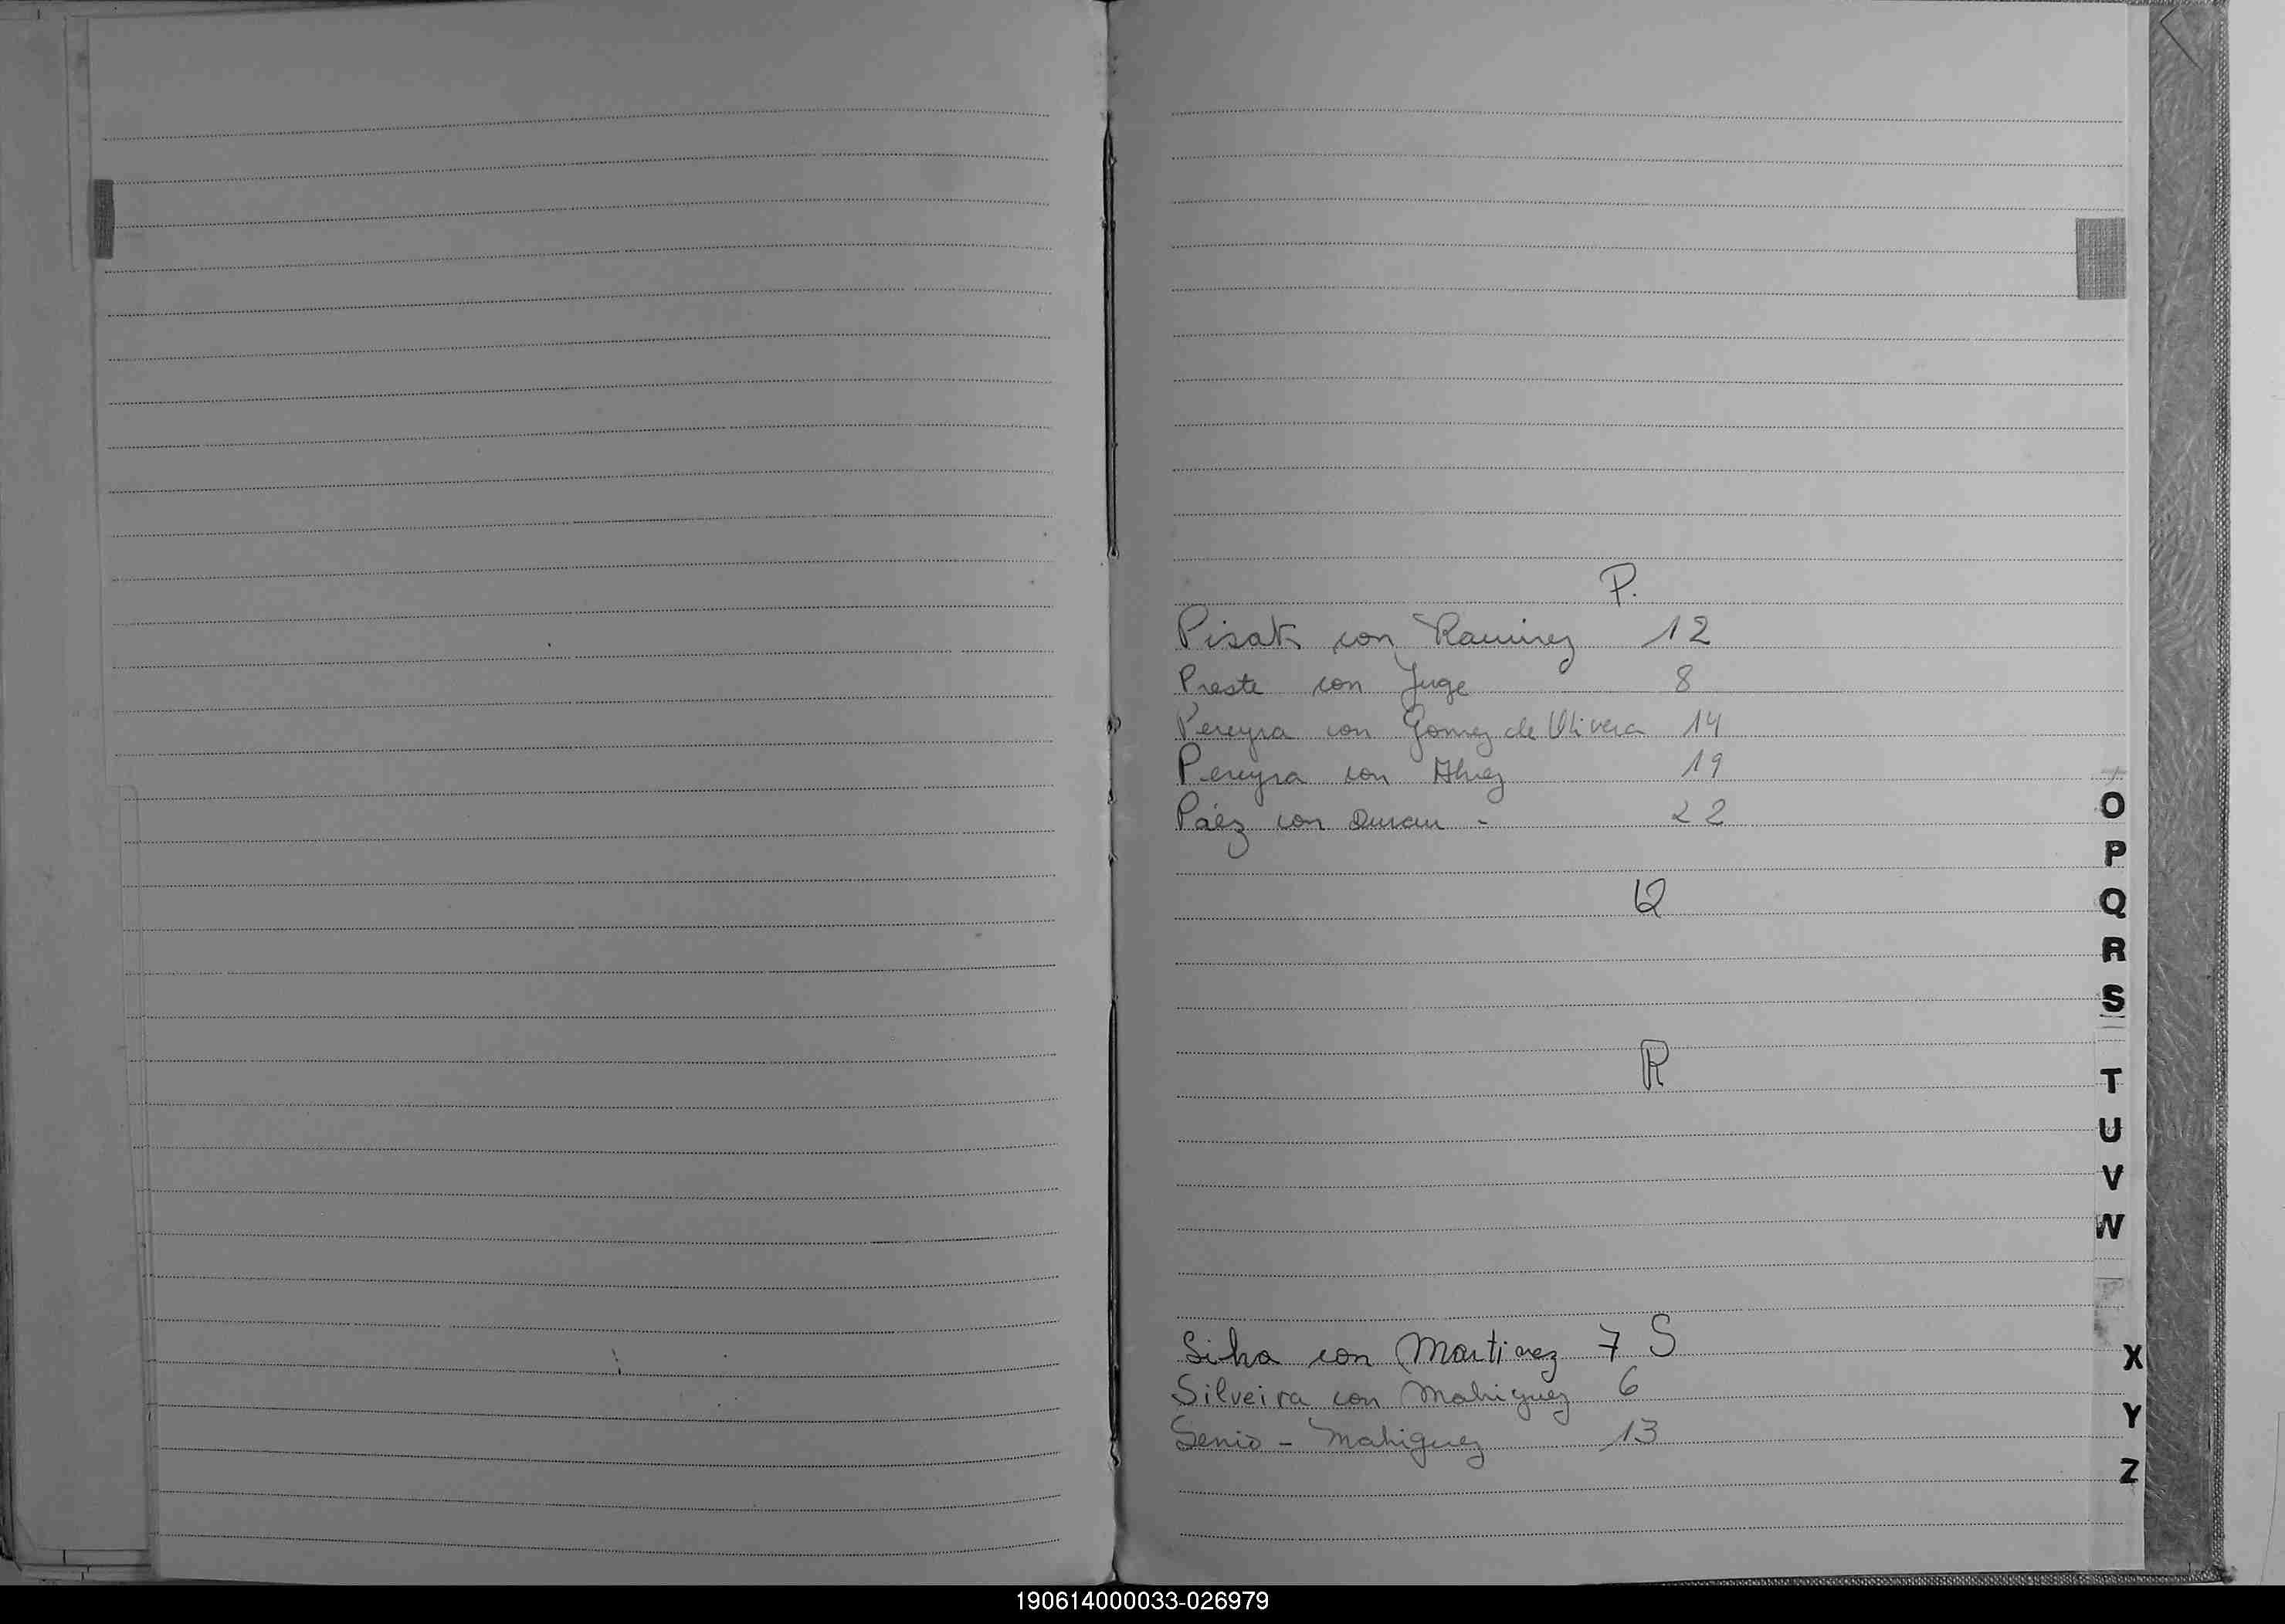 P.
Pisak con Ramirez 12
Preste con Juge 8
Pereyra con Gomez de Olivera 14
Pereyra con 19
Páez con Duran - 22
Q
R
Silva con Martinez 7 S
Silveira con Mahiguez 6
Senio - Mahiguez 13
O
P
Q
R
S
T
U
V
W
X
Y
Z
190614000033-026979